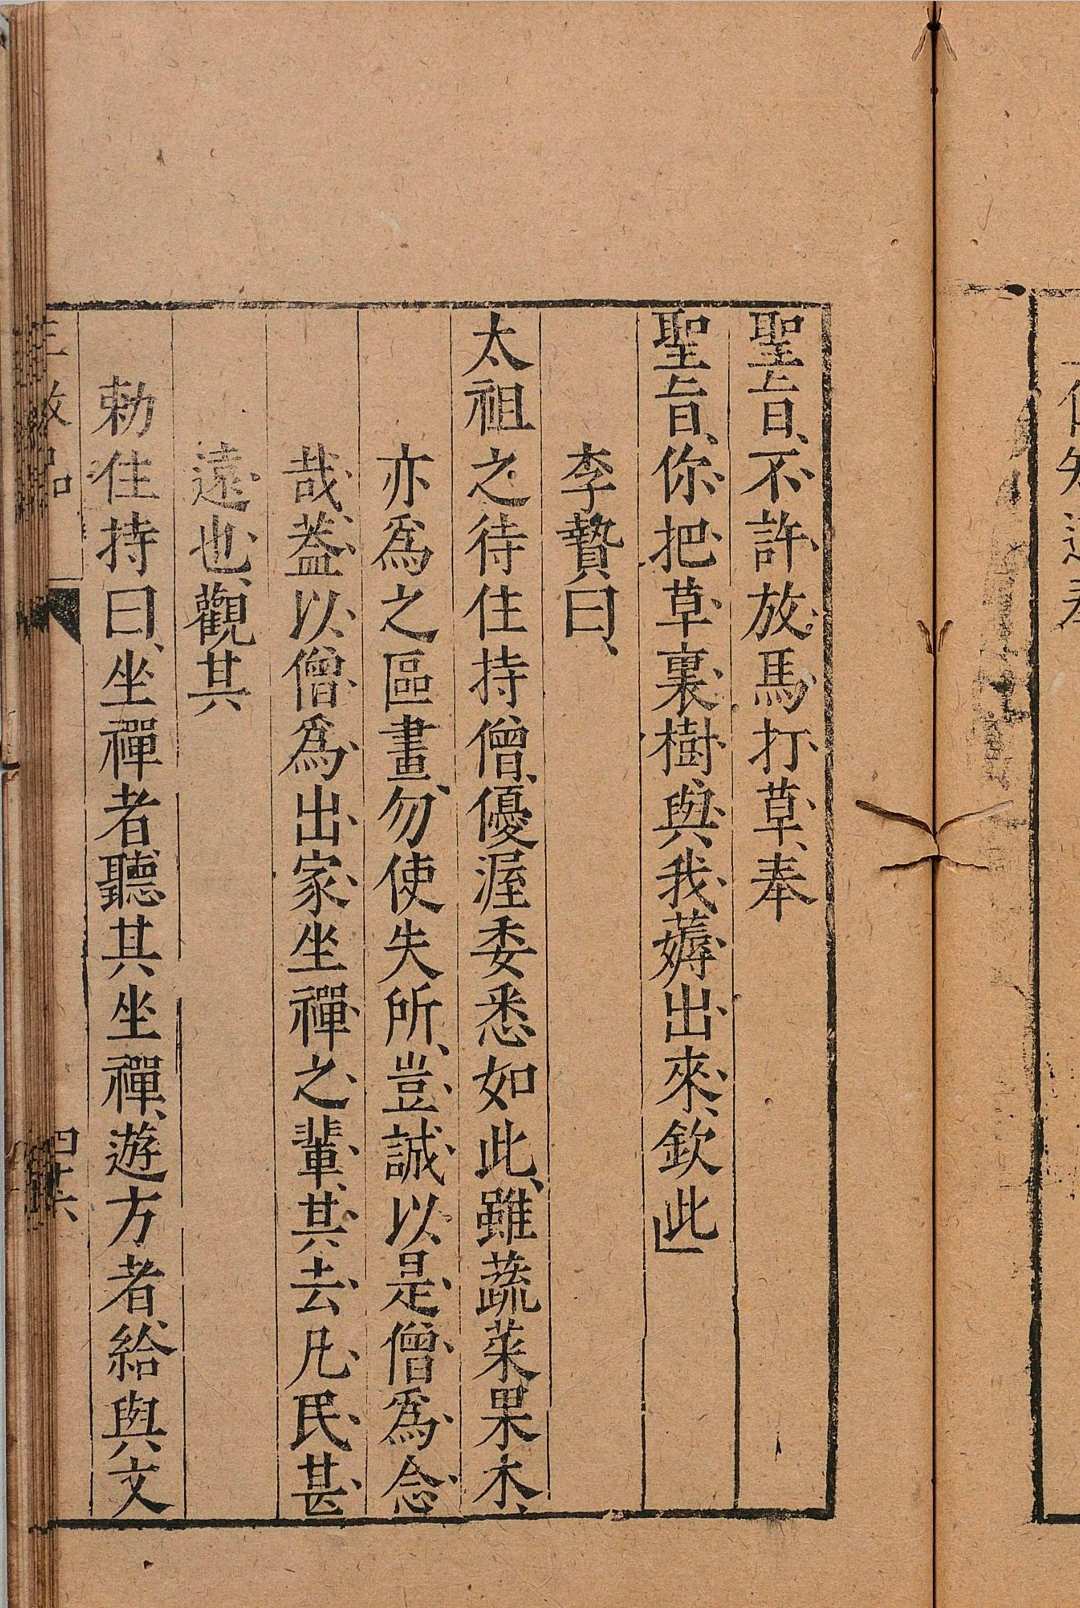 聖旨、不許放馬打草、奉
聖旨、你把草裏樹、與我薅出來、欽此」
李贄曰、
太祖之待住持僧、優渥委悉如此、雖蔬菜果木、
亦爲之區畫、勿使失所、豈誠以是僧爲念
哉、蓋以僧爲出家坐禪之輩、其去凡民甚
遠也、觀其
勅住持曰、坐禪者聽其坐禪、遊方者給與文